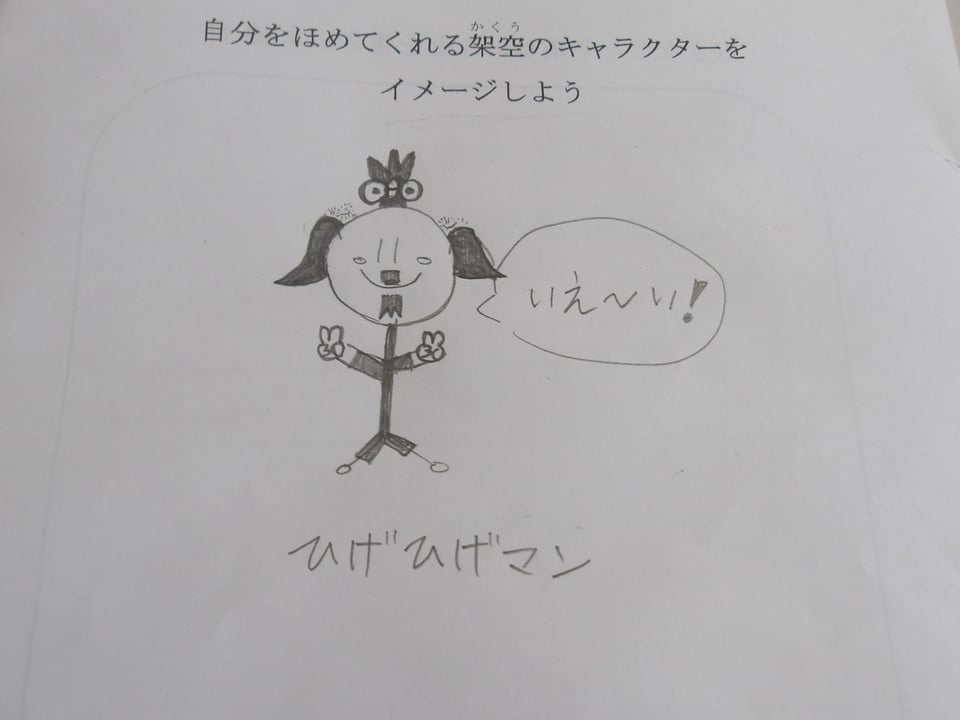 自分をほめてくれる架空のキャラクターを
かくう
イメージしよう
いえ〜い!
ひげひげマン